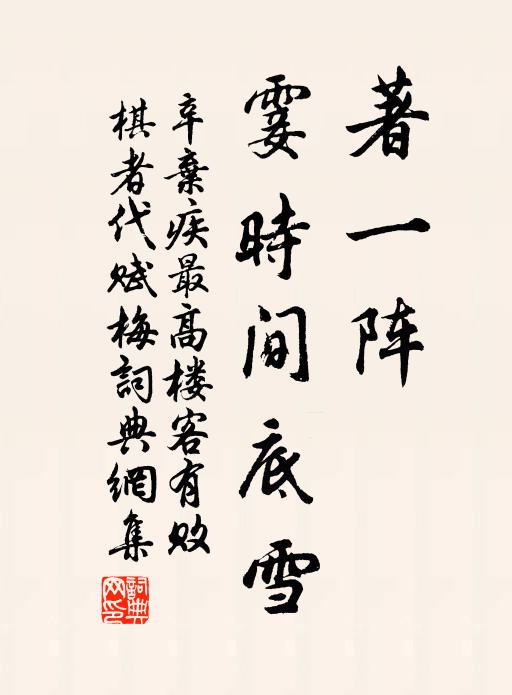 著一阵
霎時间底雪
辛棄疾最高楼客有败
棋者代赋梅詞典網集
詞典网印